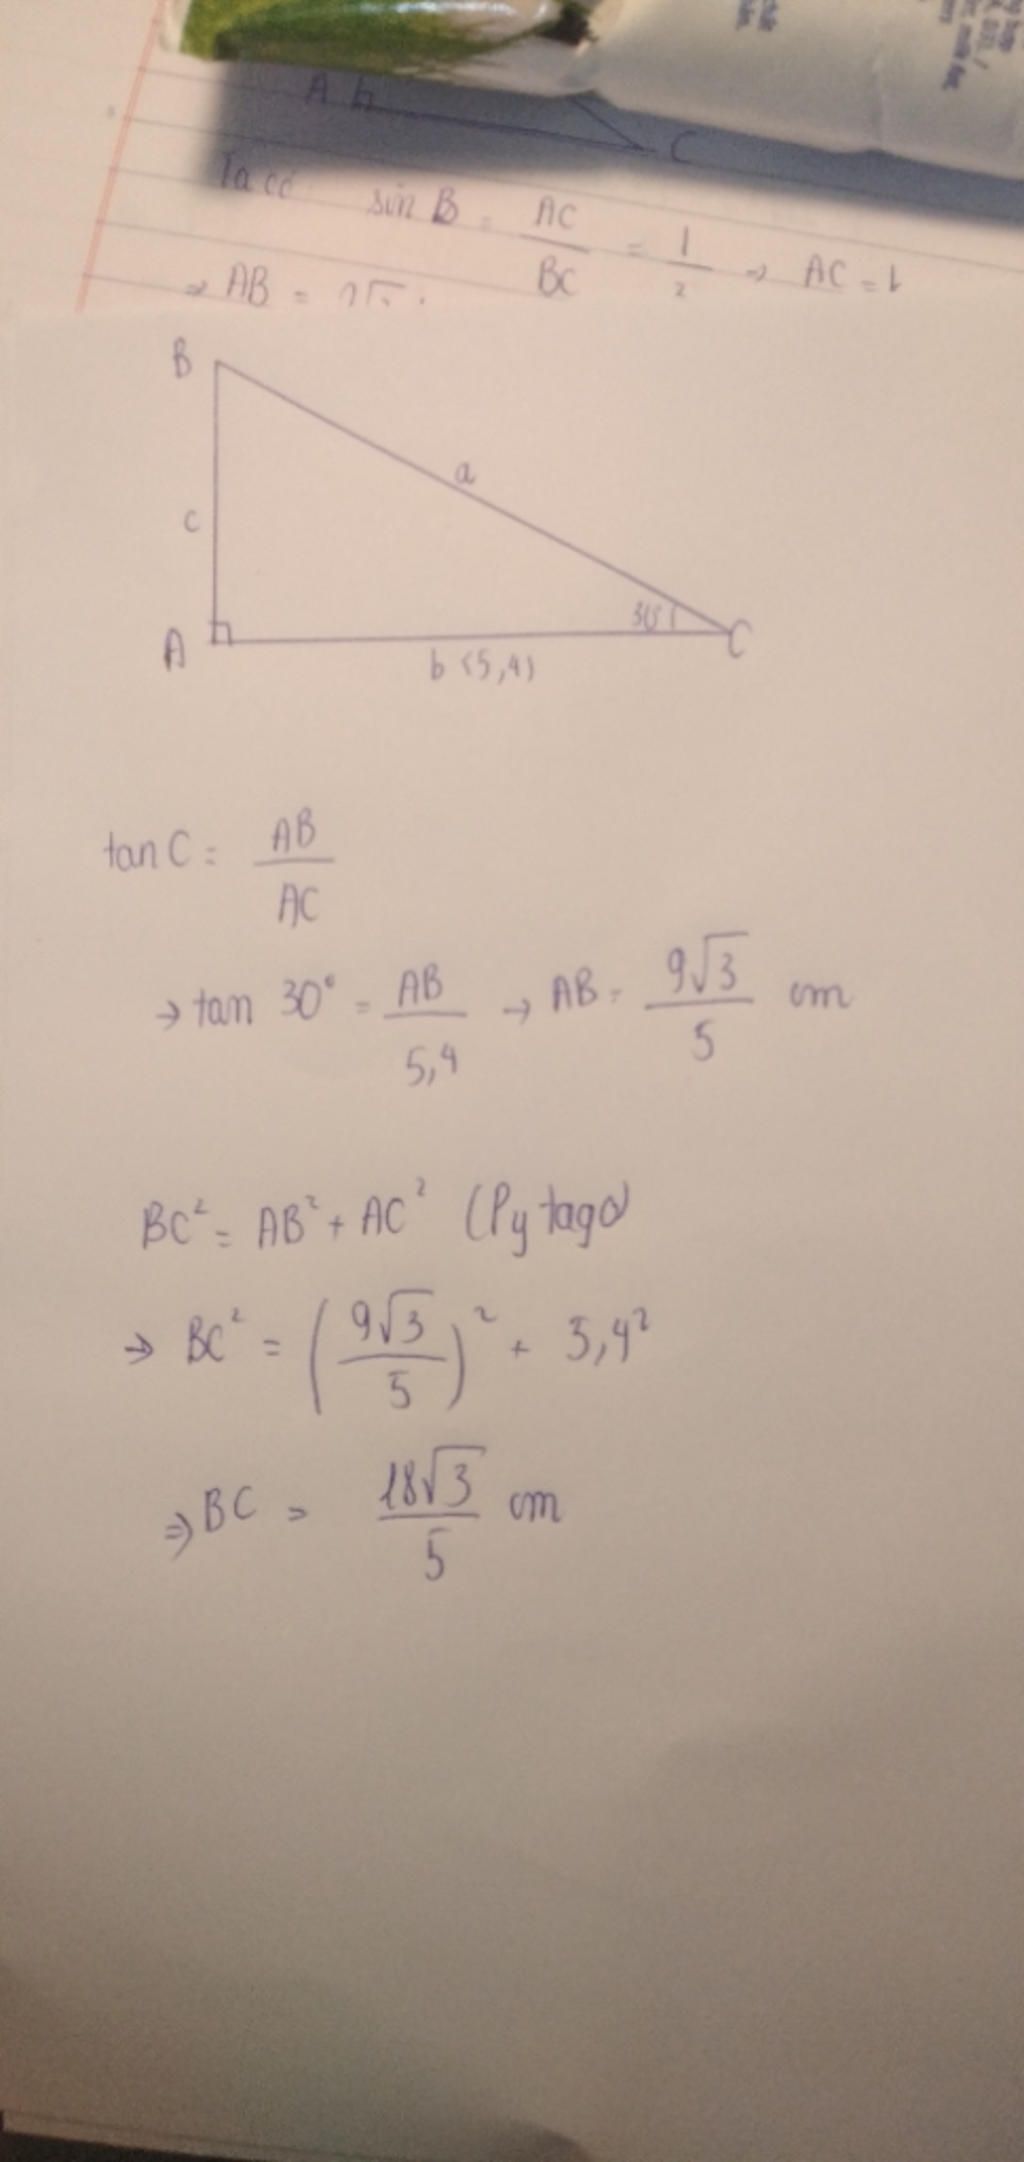 A b C
Ta có sin B = AC/BC = 1/2 → AC = 
→ AB =
B
a
c
30°
A C
b (5,4)
tan C = AB/AC
→ tan 30° = AB/5,4 → AB = 9√3/5 cm
BC² = AB² + AC² (Pytago)
→ BC² = (9√3/5)² + 5,4²
⇒ BC = 18√3/5 cm